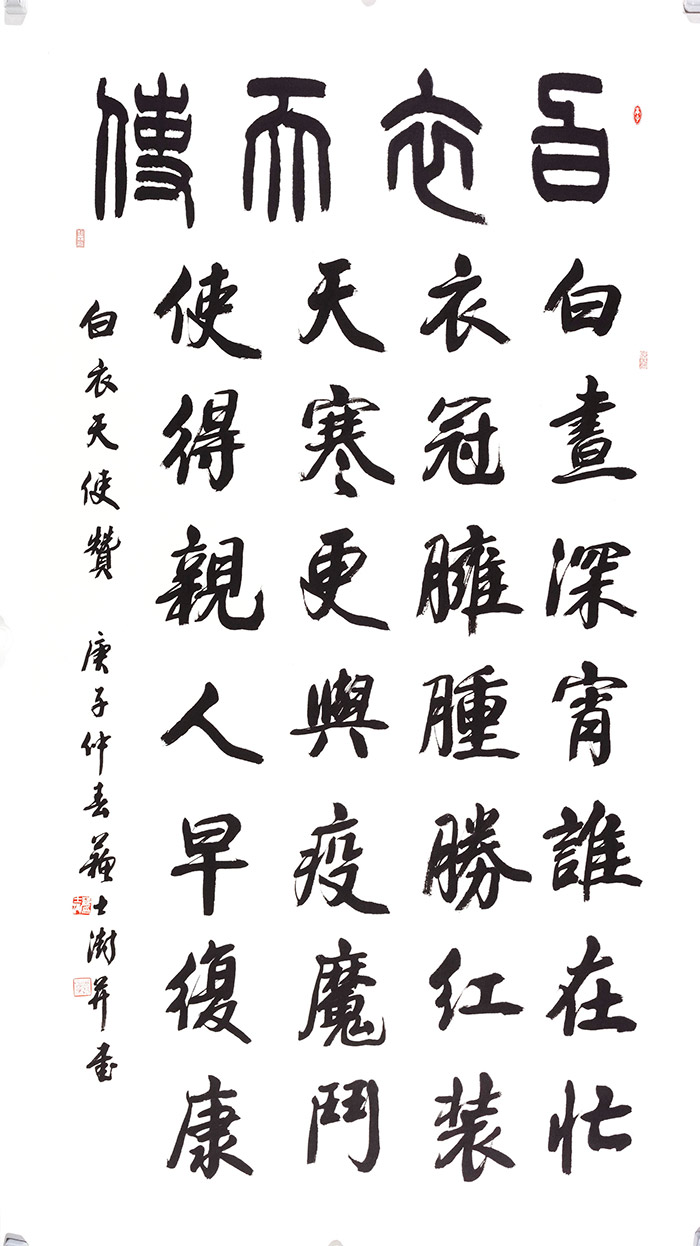 白衣天使
白晝深宵誰在忙
衣冠臃腫勝红装
天寒更與疫魔鬥
使得親人早復康
白衣天使贊 庚子仲春蘇士澍并書